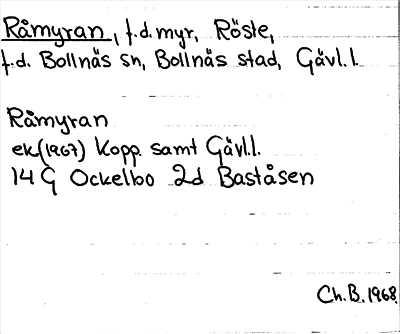 Råmyran, f.d. myr, Röste,
f.d. Bollnäs sn, Bollnäs stad, Gävl.l.
Råmyran
ek(1967) Kopp. samt Gävl.l.
14 G Ockelbo 2d Baståsen
Ch.B. 1968